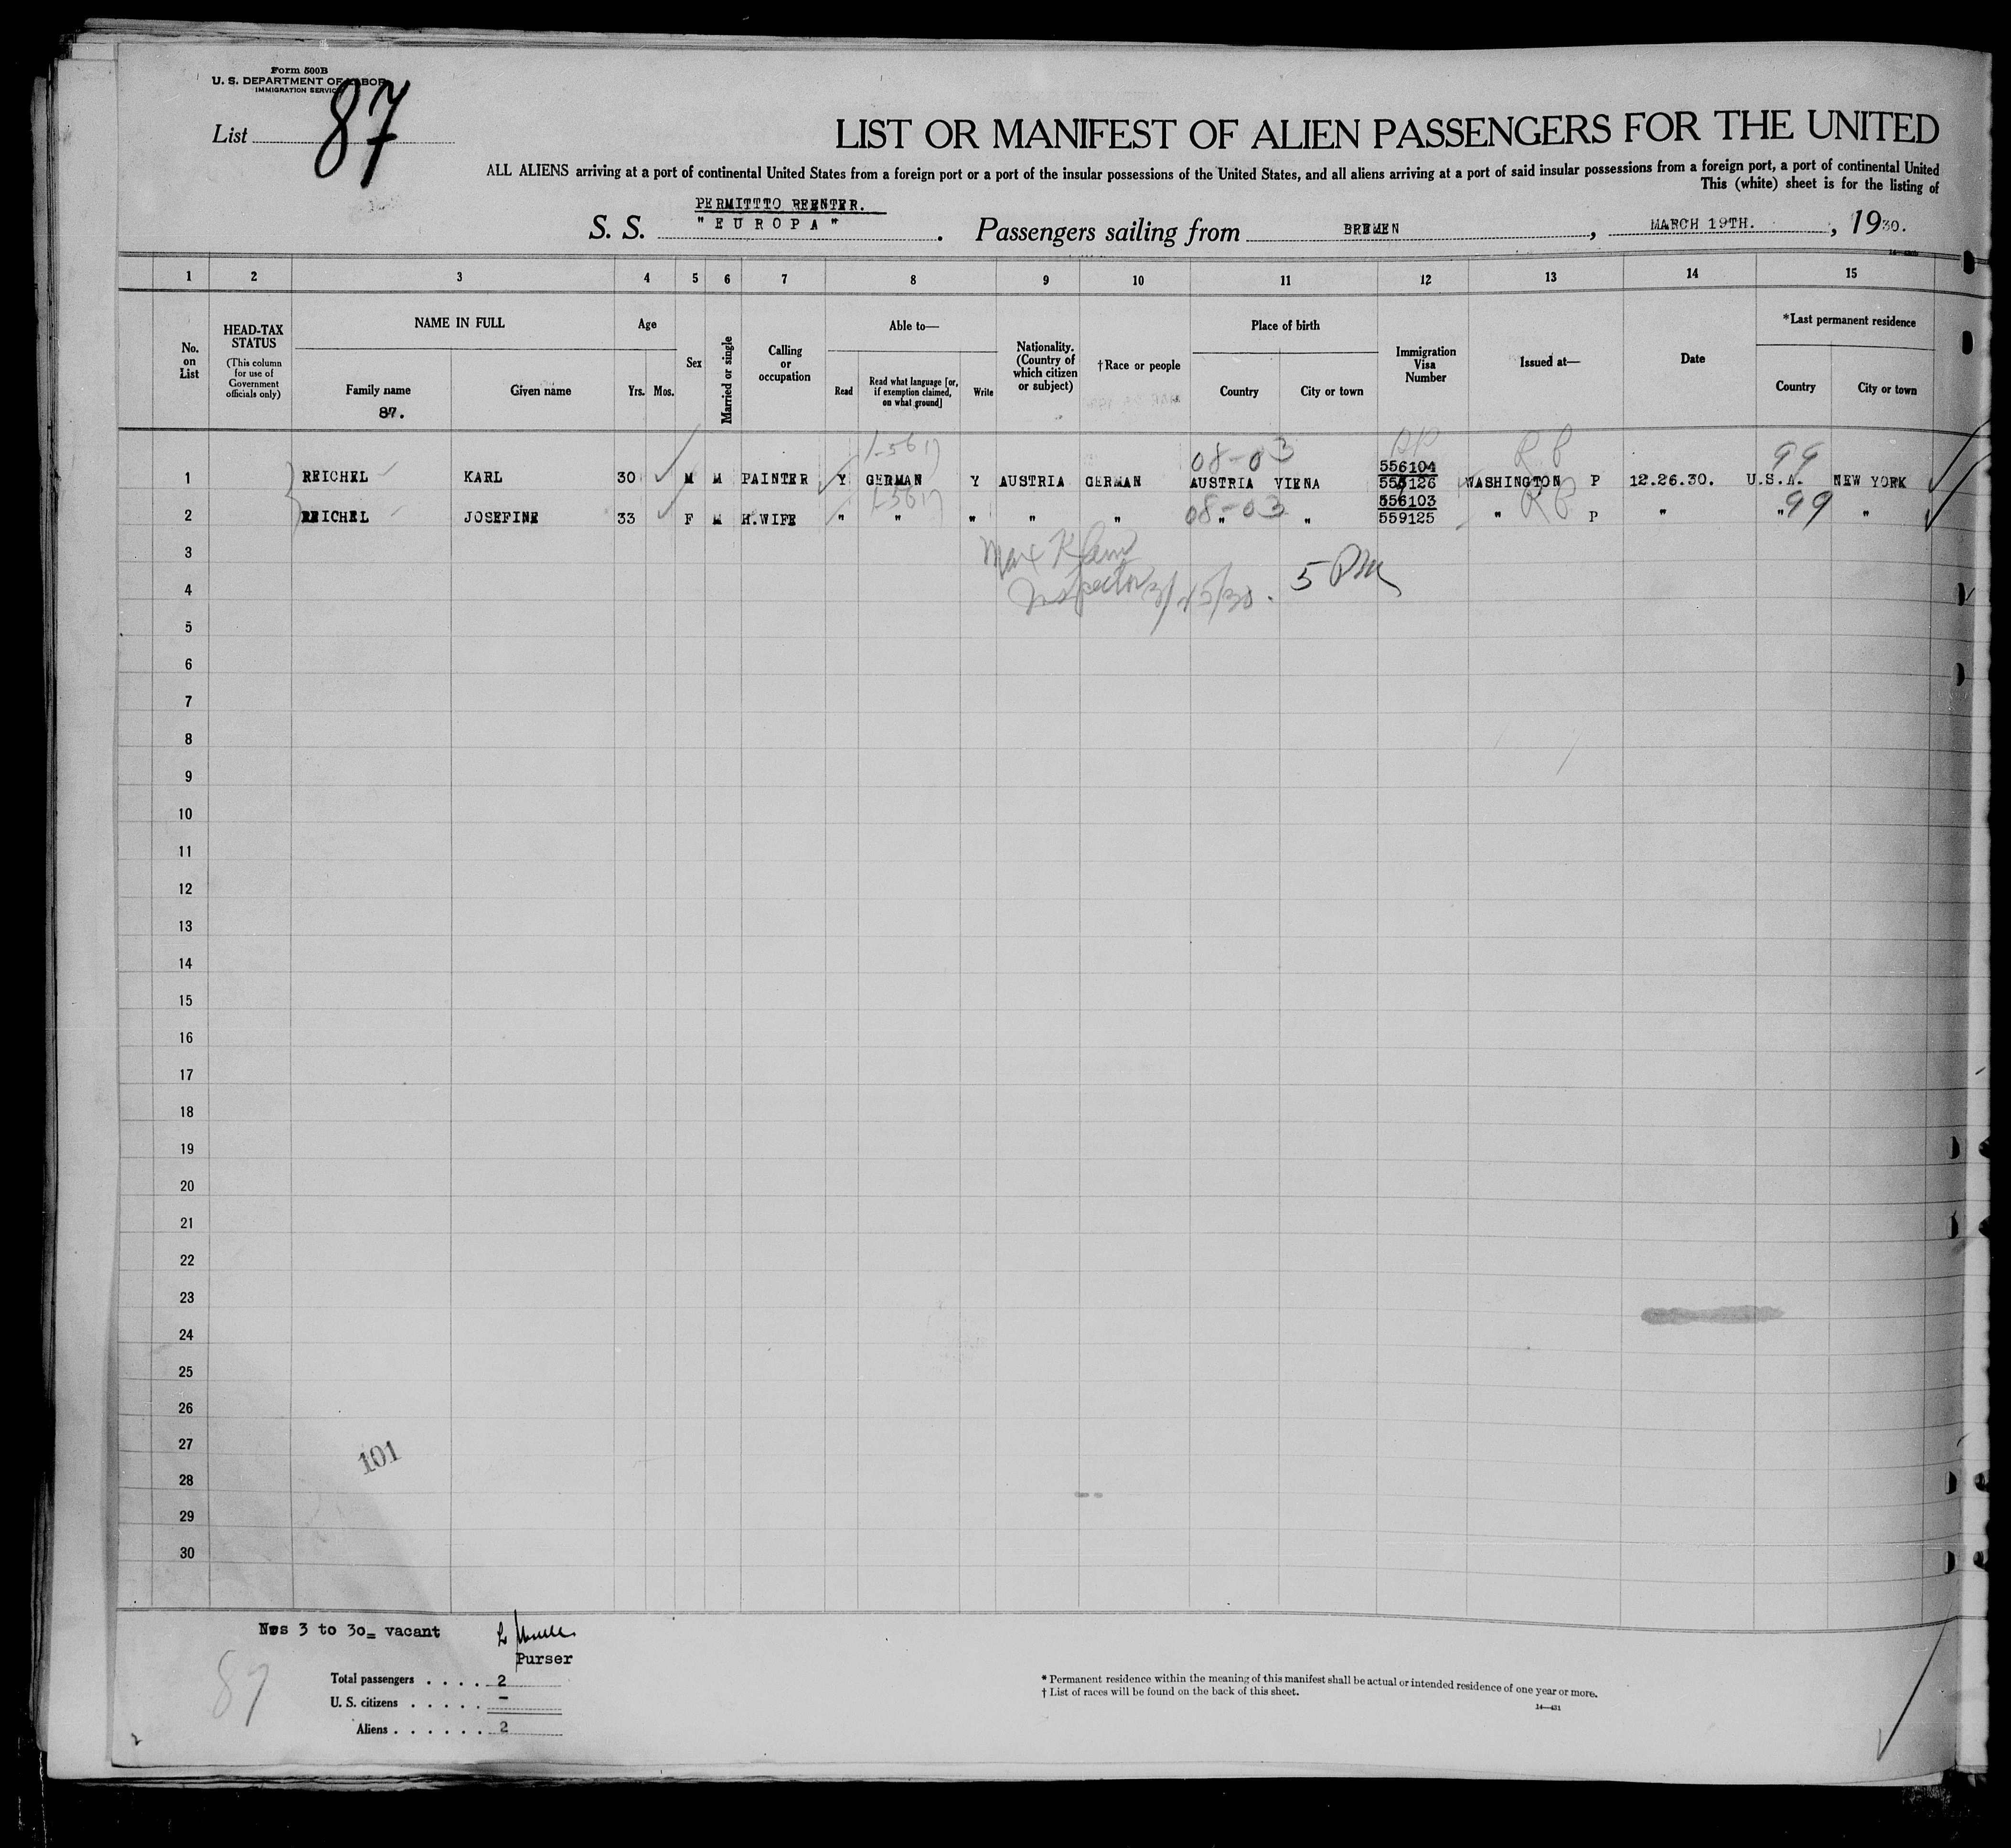 Form 500B
U. S. DEPARTMENT OF LABOR
IMMIGRATION SERVICE
List 87
LIST OR MANIFEST OF ALIEN PASSENGERS FOR THE UNITED
ALL ALIENS arriving at a port of continental United States from a foreign port or a port of the insular possessions of the United States, and all aliens arriving at a port of said insular possessions from a foreign port, a port of continental United
This (white) sheet is for the listing of
PERMITTTO REENTER.
S. S. "EUROPA". Passengers sailing from BREMEN, MARCH 19TH., 1930.
1 2 3 4 5 6 7 8 9 10 11 12 13 14 15
No. on List
HEAD-TAX STATUS
(This column for use of Government officials only)
NAME IN FULL
Family name
87.
Given name
Age
Yrs. Mos.
Sex
Married or single
Calling or occupation
Able to—
Read
Read what language [or, if exemption claimed, on what ground]
Write
Nationality. (Country of which citizen or subject)
†Race or people
Place of birth
Country
City or town
Immigration Visa Number
Issued at—
Date
*Last permanent residence
Country
City or town
08-03 99
556104
1 REICHEL KARL 30 M M PAINTER Y GERMAN Y AUSTRIA GERMAN AUSTRIA VIENA WASHINGTON P 12.26.30. U.S.A. NEW YORK
08-03 99
556103
2 REICHEL JOSEFINE 33 F M H.WIFE " " " " " " " 559125 " P " " "
3
Inspector 5 PM
4
5
6
7
8
9
10
11
12
13
14
15
16
17
18
19
20
21
22
23
24
25
26
27
101
28
29
30
Nos 3 to 30= vacant
Purser
87
Total passengers . . . . 2
U. S. citizens . . . . . –
Aliens . . . . . . 2
* Permanent residence within the meaning of this manifest shall be actual or intended residence of one year or more.
† List of races will be found on the back of this sheet.
14—431